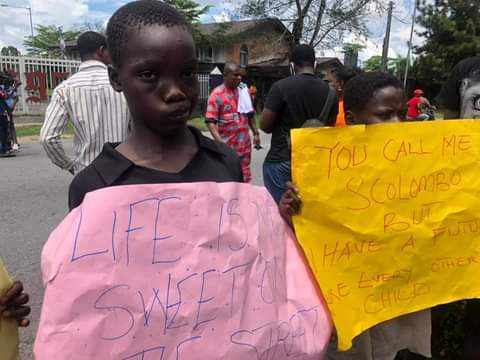 LIFE IS NOT
SWEET ON
THE STREET
YOU CALL ME
SCOLOMBO
BUT
I HAVE A FUTU
KE EVERY OTHER
CHILD